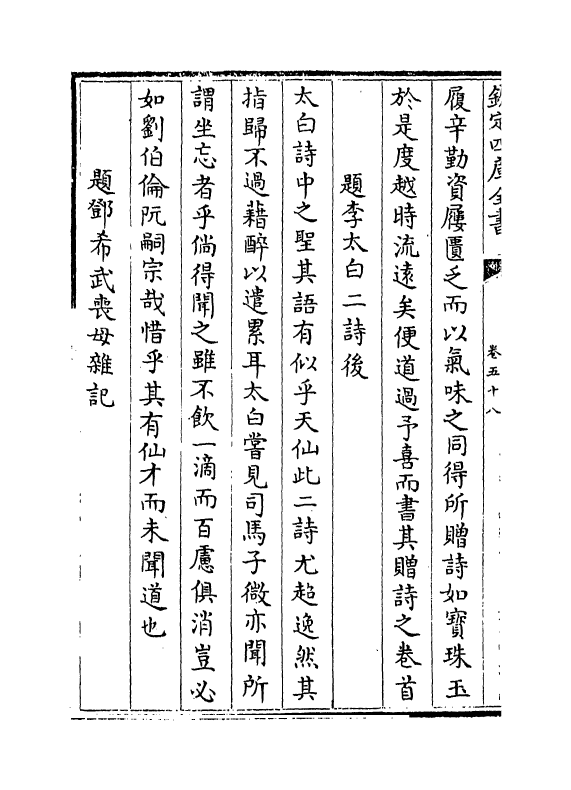 欽定四庫全書
卷五十八
履辛勤資屨匱乏而以氣味之同得所贈詩如寶珠玉
於是度越時流遠矣便道過予喜而書其贈詩之卷首
題李太白二詩後
太白詩中之聖其語有似乎天仙此二詩尤超逸然其
指歸不過藉醉以遣累耳太白嘗見司馬子微亦聞所
謂坐忘者乎倘得聞之雖不飲一滴而百慮俱消豈必
如劉伯倫阮嗣宗哉惜乎其有仙才而未聞道也
題鄧希武喪母雜記